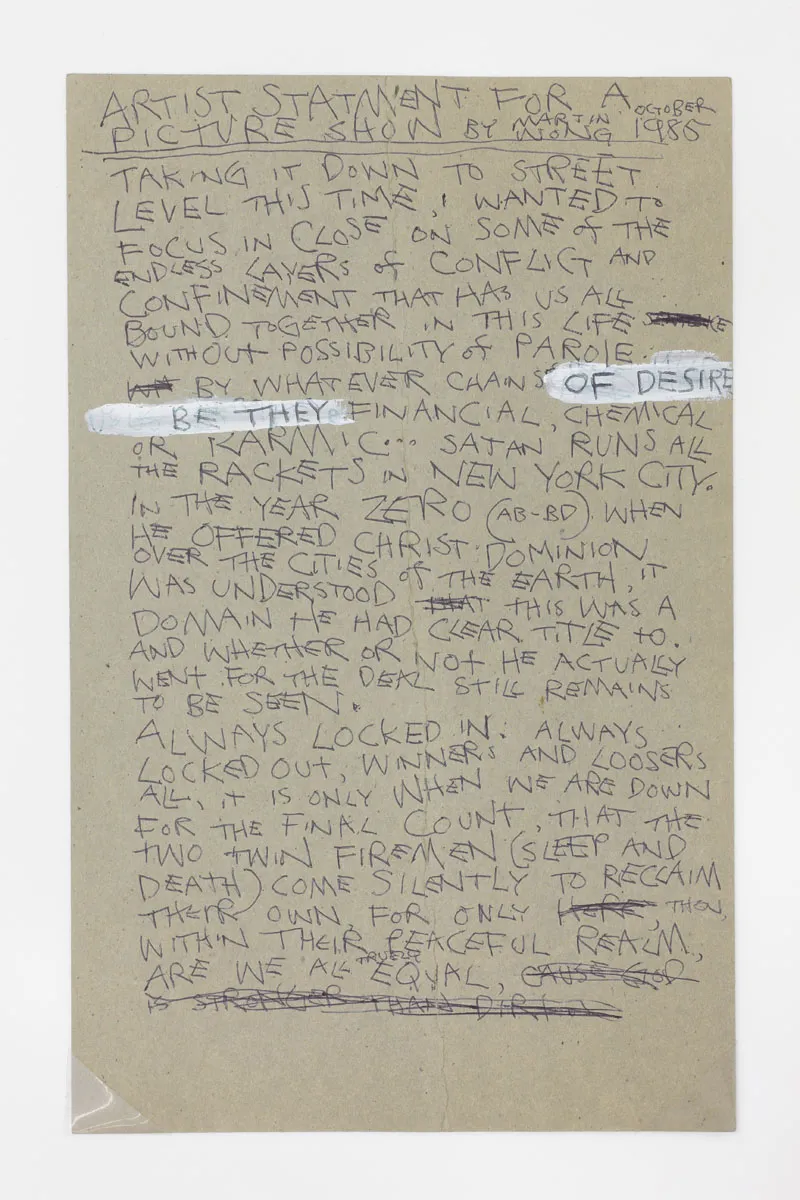 ARTIST STATMENT FOR A OCTOBER
PICTURE SHOW BY MARTIN WONG 1985
TAKING IT DOWN TO STREET
LEVEL THIS TIME, I WANTED TO
FOCUS IN CLOSE ON SOME of THE
ENDLESS LAYERS of CONFLICT AND
CONFINEMENT THAT HAS US ALL
BOUND TOGETHER IN THIS LIFE
WITHOUT POSSIBILITY of PAROLE
BY WHATEVER CHAINS OF DESIRE
BE THEY FINANCIAL, CHEMICAL
OR KARMIC... SATAN RUNS ALL
THE RACKETS IN NEW YORK CITY.
IN THE YEAR ZERO (AB-BD) WHEN
HE OFFERED CHRIST DOMINION
OVER THE CITIES of THE EARTH, IT
WAS UNDERSTOOD THAT THIS WAS A
DOMAIN HE HAD CLEAR TITLE TO.
AND WHETHER OR NOT HE ACTUALLY
WENT FOR THE DEAL STILL REMAINS
TO BE SEEN.
ALWAYS LOCKED IN. ALWAYS
LOCKED OUT, WINNERS AND LOOSERS
ALL, IT IS ONLY WHEN WE ARE DOWN
FOR THE FINAL COUNT, THAT THE
TWO TWIN FIREMEN (SLEEP AND
DEATH) COME SILENTLY TO RECLAIM
THEIR OWN, FOR ONLY HERE, THEN,
WITHIN THEIR PEACEFUL REALM,
ARE WE ALL TRUELY EQUAL, CAUSE
IS STRONGER THAN DIRT